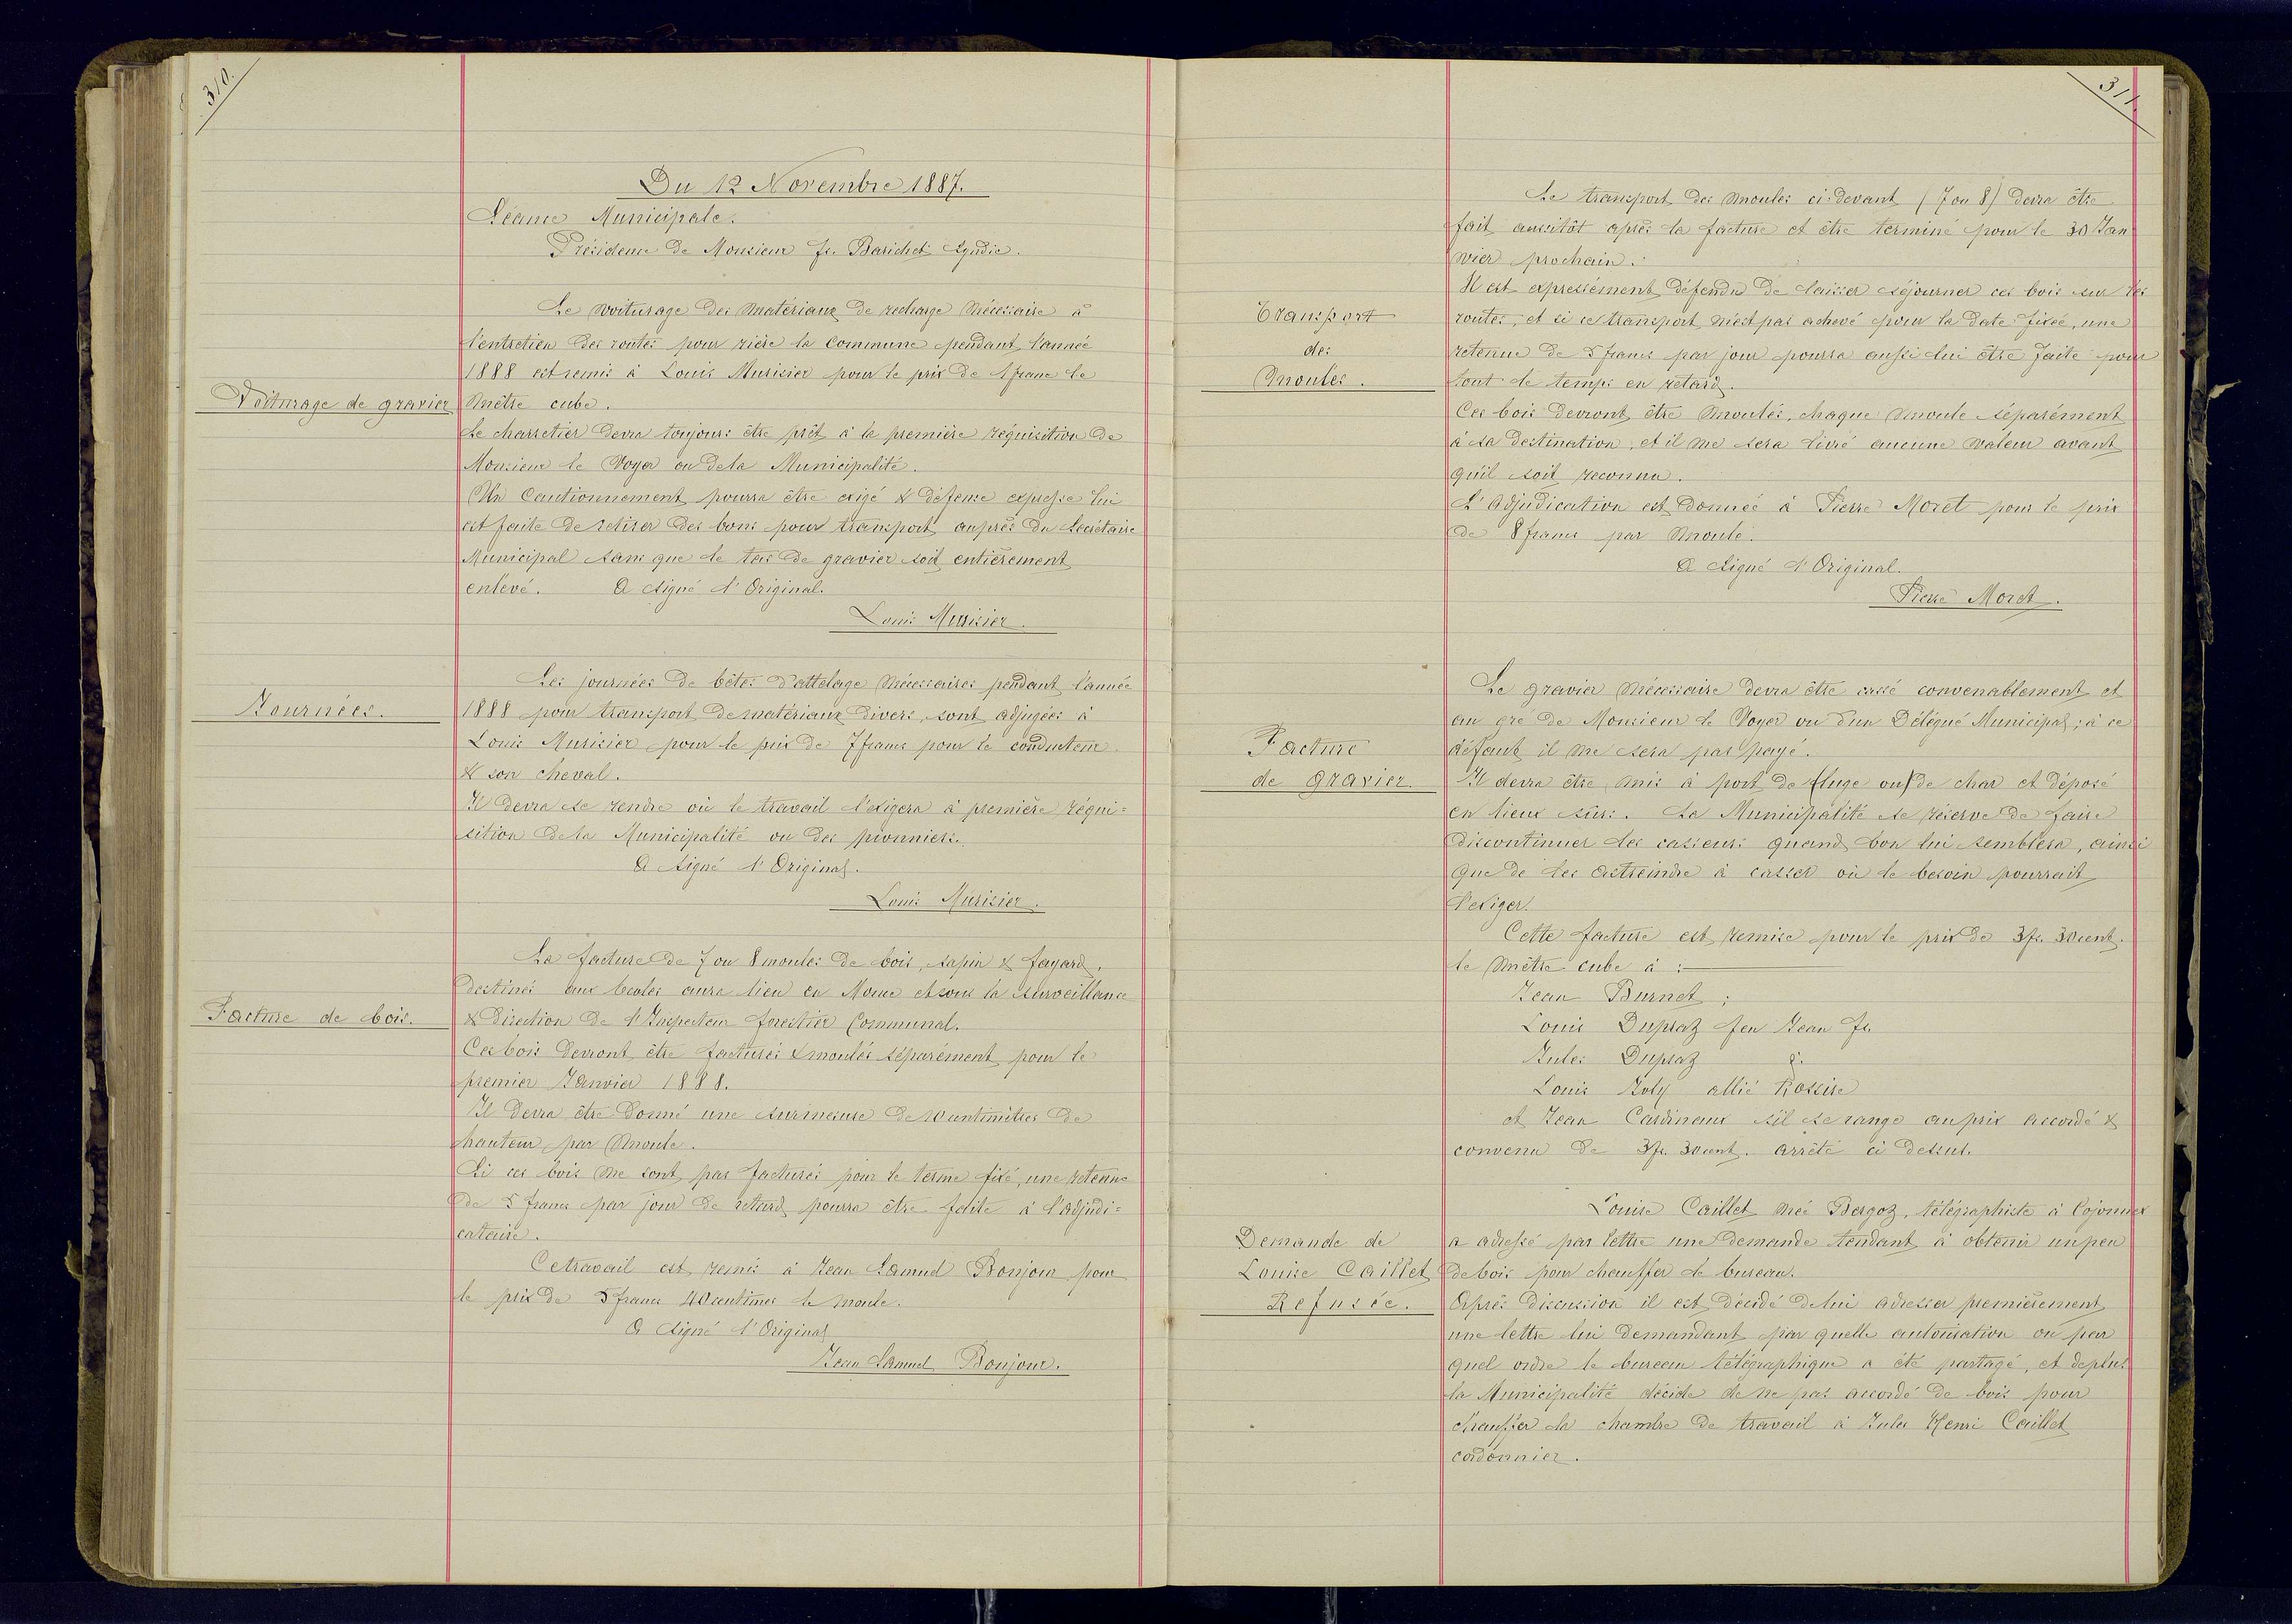 310.
Du 12 Novembre 1887.
Séance Municipale.
Présidence de Monsieur fs. Barichet Syndic.
Le voiturage des matériaux de recharge nécessaire à
l'entretien des routes pour rière la commune pendant l'année
1888 est remis à Louis Murisier pour le prix de 1 franc le
Voiturage de gravier
mètre cube.
Le charretier devra toujours être prêt à la première réquisition de
Monsieur le Voyer ou de la Municipalité.
Un cautionnement pourra être exigé & défense expresse lui
est faite de retirer des bons pour transport auprès du Secrétaire
Municipal sans que le tas de gravier soit entièrement
enlevé. A signé l'Original.
Louis Murisier.
Les journées de bêtes d'attelage nécessaires pendant l'année
Journées.
1888 pour transport de matériaux divers, sont adjugées à
Louis Murisier pour le prix de 7 francs pour le conducteur
& son cheval.
Il devra se rendre où le travail l'exigera à première réqui=
sition de la Municipalité ou des pionniers.
A signé l'Original.
Louis Murisier.
La facture de 7 ou 8 moules de bois, sapin & fayard,
destinés aux écoles aura lieu en Moue et sous la surveillance
Facture de bois.
& direction de l'Inspecteur forestier Communal.
Ces bois devront être facturés & moulés séparément pour le
premier Janvier 1888.
Il devra être donné une surmesure de 10 centimètres de
hauteur par moule.
Si ces bois ne sont pas facturés pour le terme fixé, une retenue
de 5 francs par jour de retard pourra être faite à l'adjudi=
cataire.
Ce travail est remis à Jean Samuel Bonjour pour
le prix de 5 francs 40 centimes le moule.
A signé l'Original
Jean Samuel Bonjour.
311.
Le transport des moules ci-devant (7 ou 8) devra être
fait aussitôt après la facture et être terminé pour le 30 Jan
vier prochain.
Il est expressément défendu de laisser séjourner ces bois sur les
Transport
des
Moules.
routes, et si ce transport n'est pas achevé pour la date fixée, une
retenue de 5 francs par jour pourra aussi lui être faite pour
tout le temps en retard.
Ces bois devront être moulés, chaque moule séparément
à sa destination, et il ne sera livré aucune valeur avant
qu'il soit reconnu.
L'adjudication est donnée à Pierre Moret pour le prix
de 8 francs par moule.
A signé l'Original.
Pierre Moret.
Le gravier nécessaire devra être cassé convenablement et
au gré de Monsieur le Voyer ou d'un Délégué Municipal; à ce
Facture
de gravier.
défaut il ne sera pas payé.
Il devra être mis à port de (luge ou) de char et déposé
en lieux sûrs. La Municipalité se réserve de faire
discontinuer les casseurs quand bon lui semblera, ainsi
que de les astreindre à casser où le besoin pourrait
l'exiger.
Cette facture est remise pour le prix de 3 fr. 30 cent.
le mètre cube à :
Jean Burnet ;
Louis Dupraz feu Jean fs.
Jules Dupraz d°.
Louis Joly allié Rossire
et Jean Cardinaux s'il se range au prix accordé &
convenu de 3 fr. 30 cent. arrêté ci dessus.
Louise Caillet née Bergoz, télégraphiste à Cojonnex
Demande de
Louise Caillet
Refusée.
a adressé par lettre une demande tendant à obtenir un peu
de bois pour chauffer le bureau.
Après discussion il est décidé de lui adresser premièrement
une lettre lui demandant par quelle autorisation ou par
quel ordre le bureau télégraphique a été partagé, et de plus
la Municipalité décide de ne pas accordé de bois pour
chauffer la chambre de travail à Jules Henri Caillet
cordonnier.